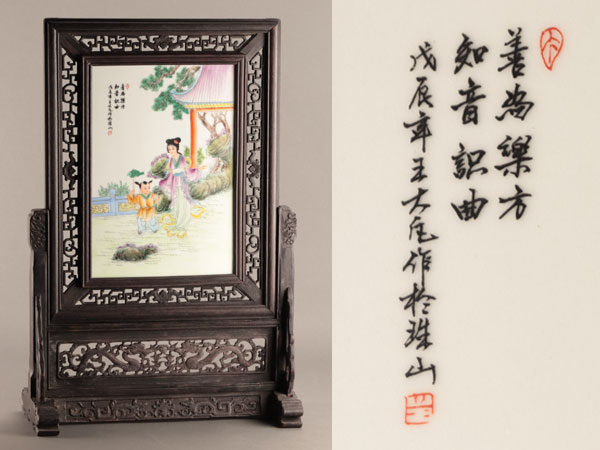 善为樂方
知音識曲
戊辰年王大凡作於珠山